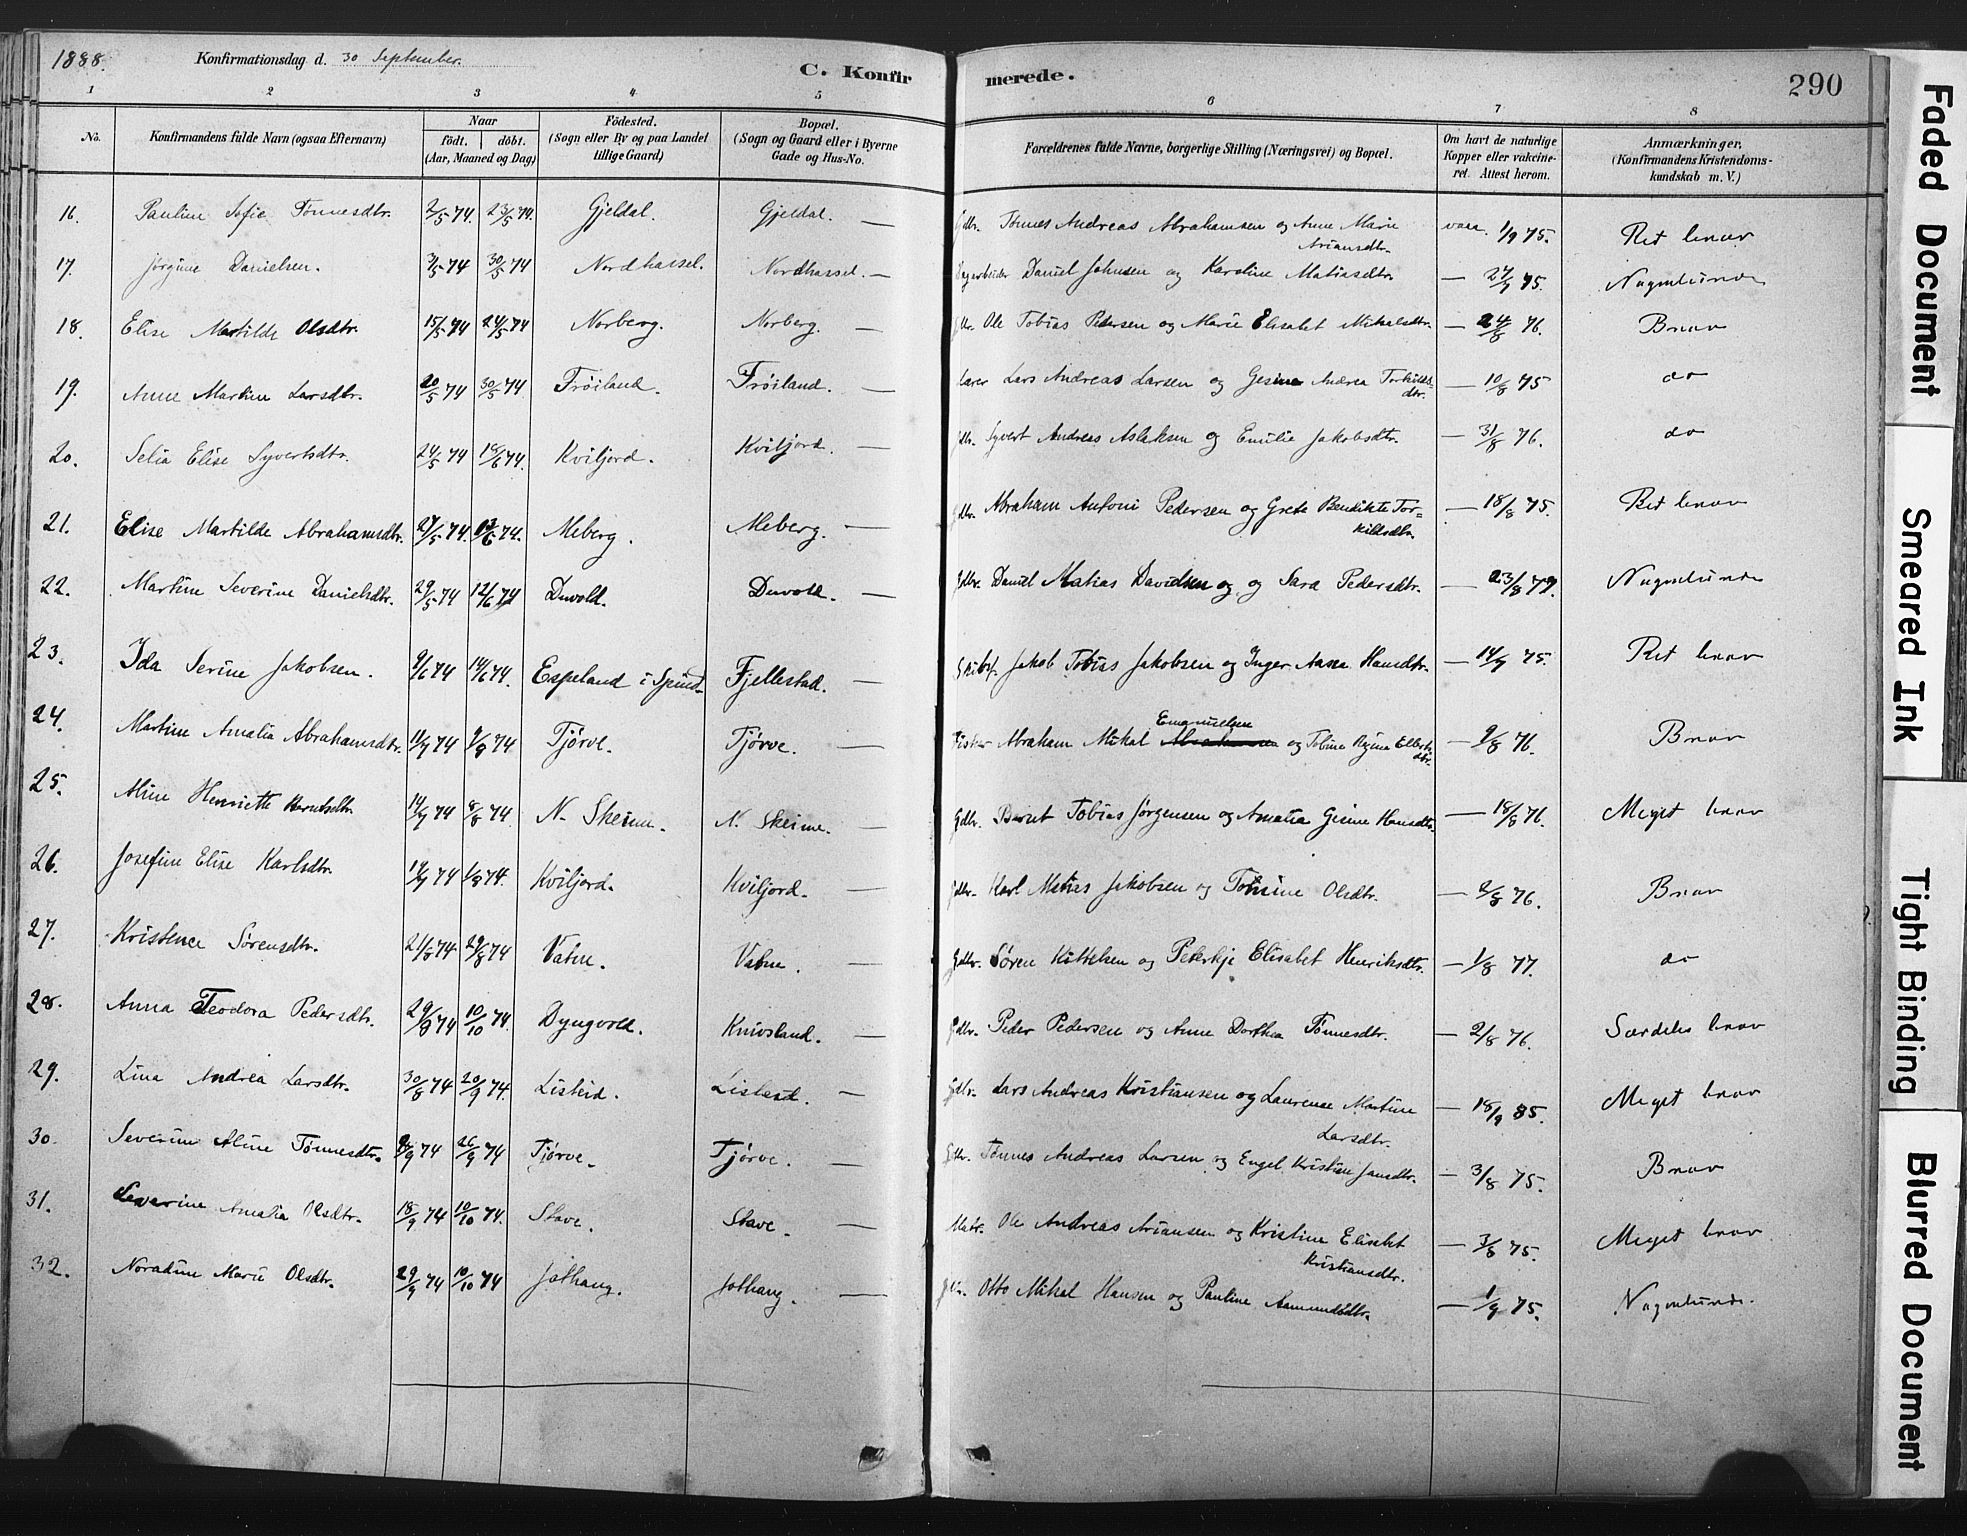 1888. Konfirmationsdag d. 30 September. C. Konfirmerede. 290
1 2 3 4 5 6 7 8
No. Konfirmandens fulde Navn (ogsaa Efternavn) Naar födt. döbt. (Aar, Maaned og Dag) Födested. (Sogn eller By og paa Landet tillige Gaard) Bopæl. (Sogn og Gaard eller i Byerne Gade og Hus-No. Forældrenes fulde Navne, borgerlige Stilling (Næringsvei) og Bopæl. Om havt de naturlige Kopper eller vakcineret. Attest herom. Anmærkninger, (Konfirmandens Kristendomskundskab m. V.)
16. Pauline Sofie Tønnesdtr. 2/5 74. 23/5 74. Gjeldal. Gjeldal. — Gdbr. Tønnes Andreas Abrahamsen og Anne Marie Ariansdtr. vacc. 1/9 75. Ret brav
17. Jørgine Danielsen. 3/5 74 30/5 74 Nordhassel. Nordhassel. — Daniel Johnsen og Karoline Matiasdtr. — 75. Nogenlunde
18. Elise Martilde Olsdtr. 15/5 74 24/5 74 Norberg. Norberg. — Gdbr. Ole Tobias Pedersen og Marie Elisabet Mikalsdtr. — 24/8 76. Brav
19. Anne Martine Larsdtr. 20/5 74 30/5 74 Frøiland. Frøiland. — Lars Andreas Larsen og Gesine Andrea Torkildsdtr. — 10/8 75 do
20. Selia Elise Syvertsdtr. 24/5 74 18/6 74. Kviljord. Kviljord. — Gdbr. Syvert Andreas Aslaksen og Emilie Jakobsdtr. — 31/8 76. do
21. Elise Martilde Abrahamsdtr. 27/5 74. 74. Meberg. Meberg. — Gdbr. Abraham Antoni Pedersen og Grete Bendikte Torkildsdtr. — 18/8 75. Ret brav
22. Martine Severine Danielsdtr. 29/5 74 12/6 74 Duvold. Duvold. — Gdbr. Daniel Matias Davidsen og og Sara Pedersdtr. — 23/8 79. Nogenlunde
23. Ida Serine Jakobsen. 9/6 74 14/6 74. Espeland i Spind. Fjellestad. — Jakob Tobias Jakobsen og Inger Aasa Hansdtr. — 14/9 75. Ret brav
24. Martine Amalia Abrahamsdtr. 11/7 74 9/8 74 Tjørve. Tjørve. — Fisker Abraham Mikal Emanuelsen og Tobine Regine Ellertsdtr. — 9/8 76. Brav
25. Aline Henriette Berntsdtr. 14/7 74 8/8 74. N. Skeime. N. Skeime. — Gdbr. Bernt Tobias Jørgensen og Amalia Gesine Hansdtr. — 18/8 76. Meget brav
26. Josefine Elise Karlsdtr. 19/7 74 1/8 74. Kviljord. Kviljord. — Gdbr. Karl Matias Jakobsen og Tomine Olsdtr. — 2/8 76. Brav
27. Kristence Sørensdtr. 21/8 74. 29/8 74 Vatne. Vatne. — Gdbr. Søren Kittelsen og Peterkje Elisabet Henriksdtr. — 1/8 77. do
28. Anna Teodora Pedersdtr. 29/8 74 10/10 74. Dyngvold. Knivsland. — Gdbr. Peder Pedersen og Anne Dorthea Tønnesdtr. — 2/8 76. Særdeles brav
29. Lina Andrea Larsdtr. 30/8 74 20/9 74. Listeid. Listeid. — Gdbr. Lars Andreas Kristiansen og Laurense Martine Larsdtr. — 18/9 85. Meget brav
30. Severine Aline Tønnesdtr. 74 26/9 74 Tjørve. Tjørve. — Gdbr. Tønnes Andreas Larsen og Engel Kristine Jansdtr. — 3/8 75. Brav
31. Severine Amalia Olsdtr. 18/9 74 10/10 74. Stave. Stave. — Matr. Ole Andreas Ariansen og Kristine Elisabet Kristiansdtr. — 3/8 75. Meget brav
32. Noradine Marie Olsdtr. 29/9 74 10/10 74 Jøthaug. Jøthaug. — Otto Mikal Hansen og Pauline Aamundsdtr. — 1/9 75. Nogenlunde
Faded Document
Smeared Ink
Tight Binding
Blurred Document